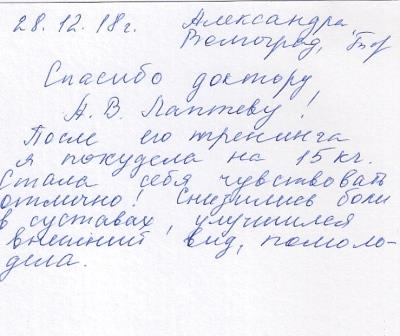 28.12.18г. Александра
Волгоград,
Спасибо доктору
А. В. Лаптеву!
После его тренинга
я похудела на 15 кг.
Стала себя чувствовать
отлично! Снизились боли
в суставах, улучшился
внешний вид, помоло-
дела.